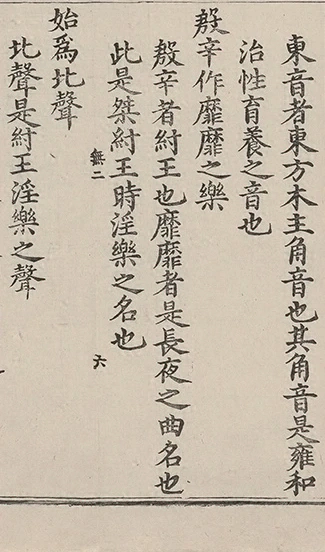 東音者東方木主角音也其角音是雍和
治性育養之音也
殷辛作靡靡之樂
殷辛者紂王也靡靡者是長夜之曲名也
此是桀紂王時淫樂之名也
無二 六
始為北聲
北聲是紂王淫樂之聲